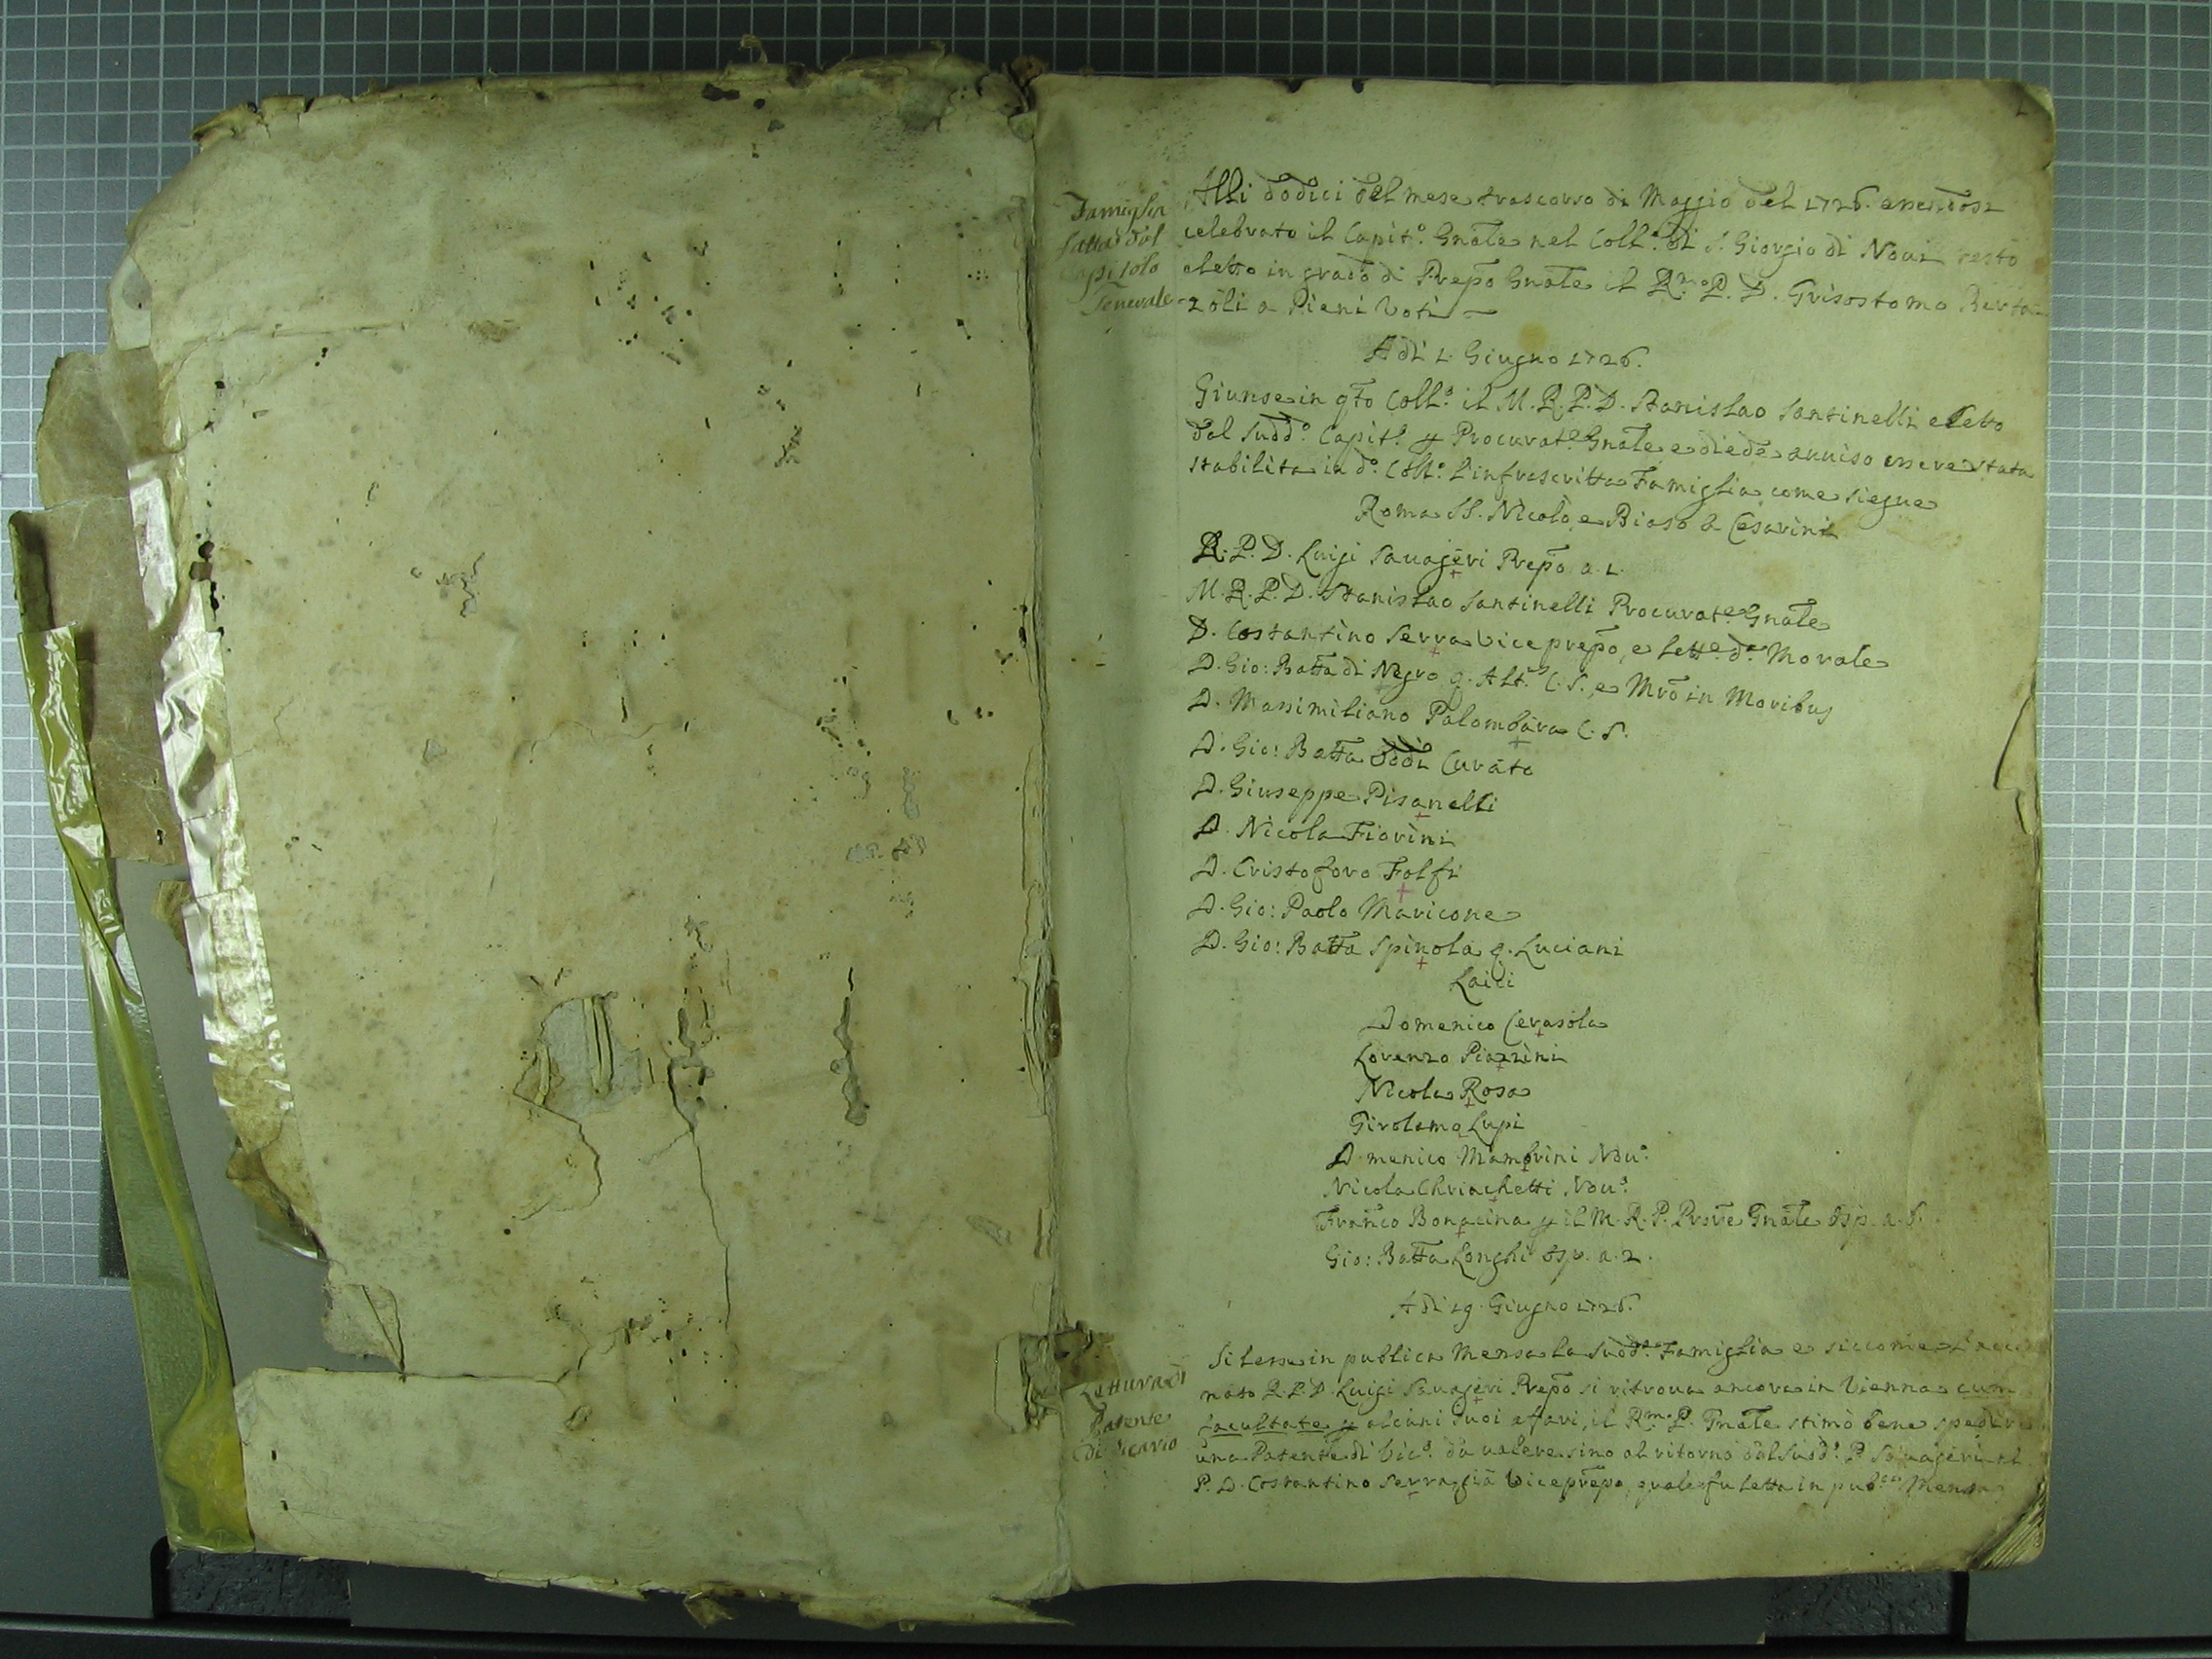 1
Famiglia
fatta dal
Capitolo
Generale
Alli dodici del mese trascorso di Maggio del 1726. essendosi
celebrato il Capit.o Gnale nel Coll.o di S. Giorgio di Novi restò
eletto in grado di Prepo Gnale il R.mo P. D. Grisostomo Berta-
zoli a Pieni Voti
Adi 1. Giugno 1726.
Giunse in qto Coll.o il M. R. P. D. Stanislao Santinelli eletto
dal Sudd.o Capit.o p Procurat.e Gnale e diede avviso essere stata
stabilita in d.o Coll.o l'infrascritta Famiglia come siegue
Roma SS. Nicolò, e Biaso a Cesarini
R. P. D. Luigi Savageri Prepo a. 1.
M. R. P. D. Stanislao Santinelli Procurat.e Gnale
D. Costantino Serra Vice prepo, e Lett.e d. Morale
D. Gio: Batta di Negro q. Alt. C. S. e Mro in Moribus
D. Massimiliano Palombara C. S.
D. Gio: Batta Oddi Curato
D. Giuseppe Pisanelli
D. Nicola Fiorini
D. Cristoforo Folfi
D. Gio: Paolo Maricone
D. Gio: Batta Spinola q. Luciani
Laici
Domenico Cerasola
Lorenzo Piazzini
Nicola Rosa
Girolamo Lupi
D menico Mambrini Nov.o
Nicola Chriachetti Nov.o
Franco Bonacina p il M. R. P. Prore Gnale Osp. a. 6.
Gio: Batta Longhi Osp. a. 2.
Adi 19. Giugno 1726.
Si lesse in publica Mensa la Sudd.a Famiglia e siccome
nato R. P. D. Luigi Savageri Prepo si ritrova ancora in Vienna cum
facultate p alcuni suoi afari, il R.mo P. Gnale stimò bene spedire
una Patente di Vic.o da valere sino al ritorno del Sud.o P. Savageri al
P. D. Costantino Serra già Viceprepo, quale fu letta in pub.ca Mensa
Lettura di
Patente
di Vicario